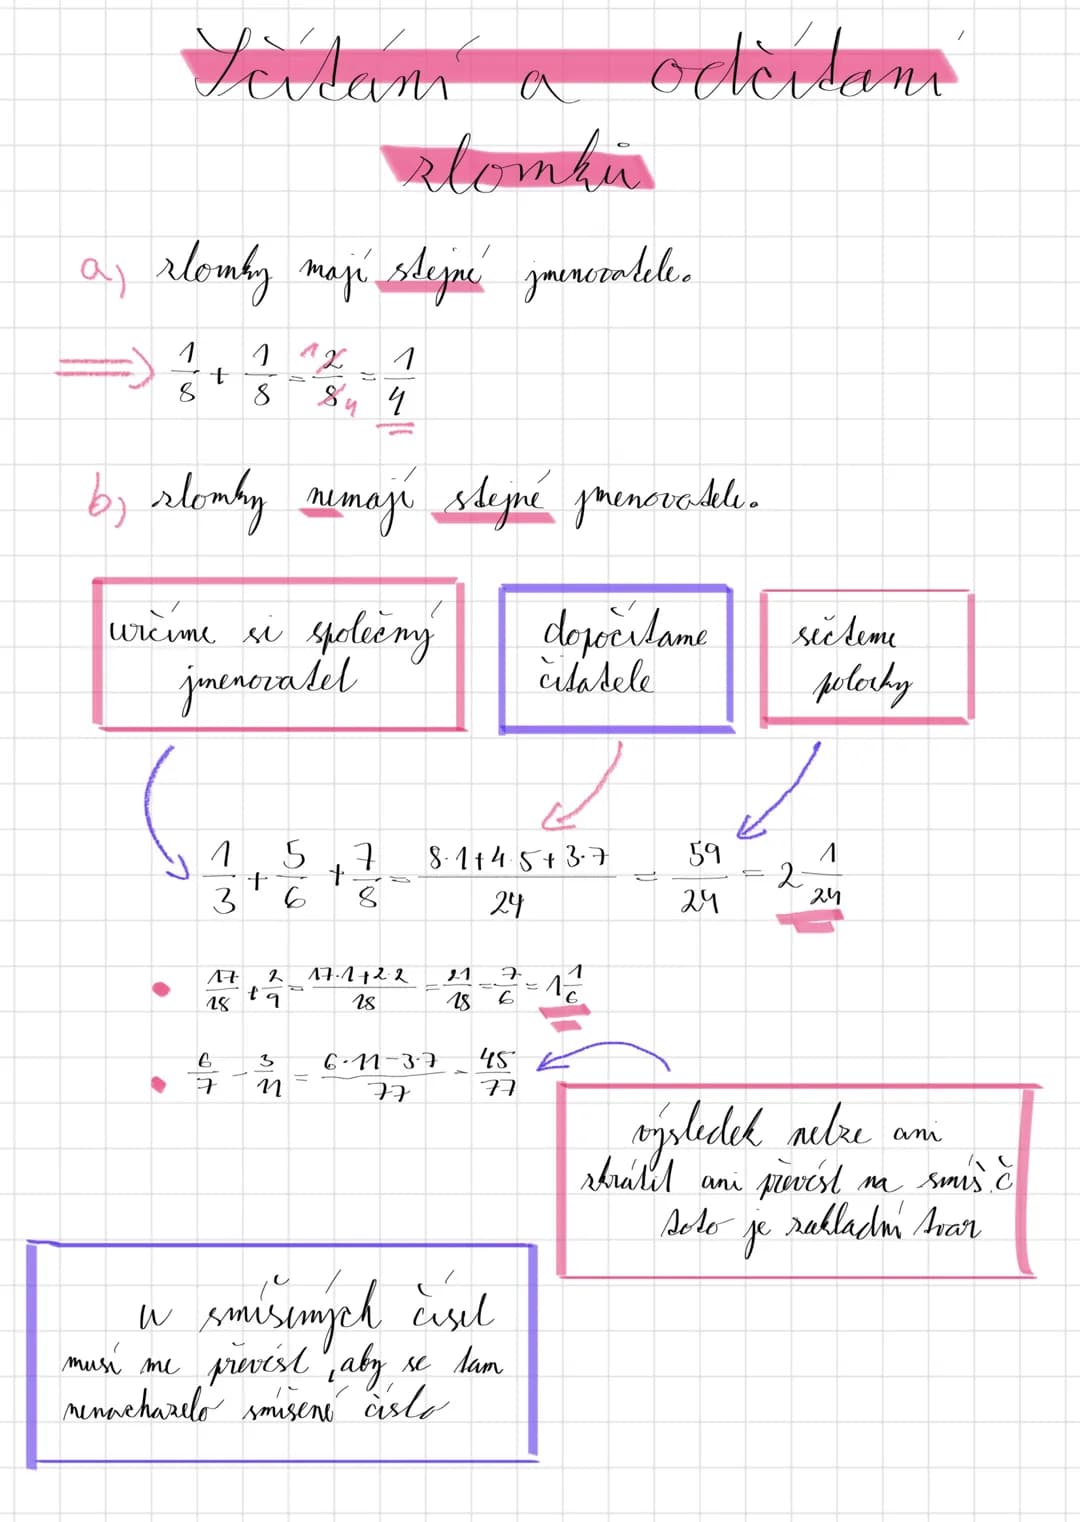 Sčítání a odčítaní
zlomků
a) zlomky mají stejné jmenovatele.
⇒ 1/8 + 1/8 = 1 2/8 4 = 1/4
b) zlomky nemají stejné jmenovatele.
určíme si společný
jmenovatel
dopočítame
čitatele
sečteme
položky
1/3 + 5/6 + 7/8 = 8·1+4·5+3·7/24 = 59/24 = 2 1/24
• 17/18 + 2/9 = 17·1+2·2/18 = 21/18 = 7/6 = 1 1/6
• 6/7 - 3/11 = 6·11-3·7/77 = 45/77
výsledek nelze ani
zkrátit ani převést na smíš.č
toto je zakladní tvar
u smíšených čísel
musí me převést, aby se tam
nenachazelo smíšené číslo